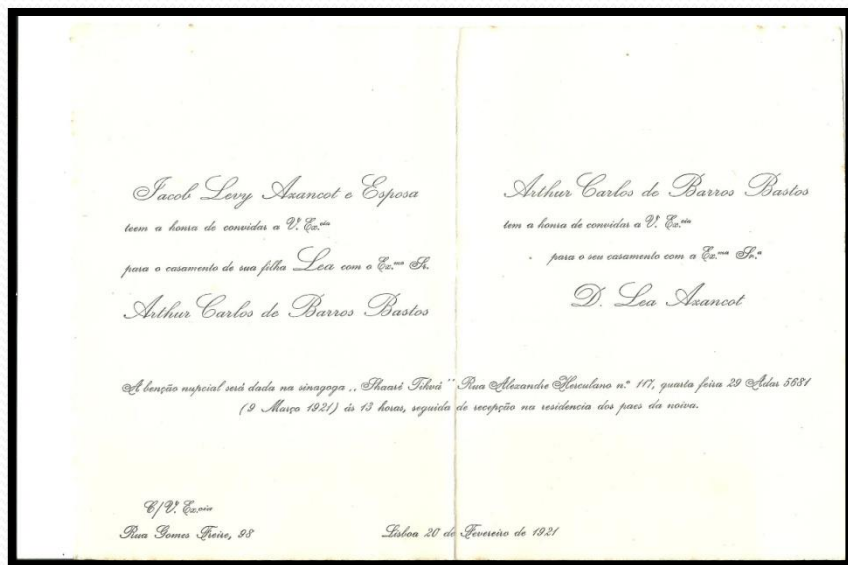 Jacob Levy Azancot e Esposa
teem a honra de convidar a V. Ex.cia
para o casamento de sua filha Lea com o Ex.mo Sr.
Arthur Carlos de Barros Bastos
Arthur Carlos de Barros Bastos
tem a honra de convidar a V. Ex.cia
para o seu casamento com a Ex.ma Sr.a
D. Lea Azancot
A benção nupcial será dada na sinagoga ,, Shaaré Tikvá " Rua Alexandre Herculano n.º 117, quarta feira 29 Adar 5681
(9 Março 1921) ás 13 horas, seguida de recepção na residencia dos paes da noiva.
C/V. Ex.cia
Rua Gomes Freire, 98
Lisboa 20 de Fevereiro de 1921